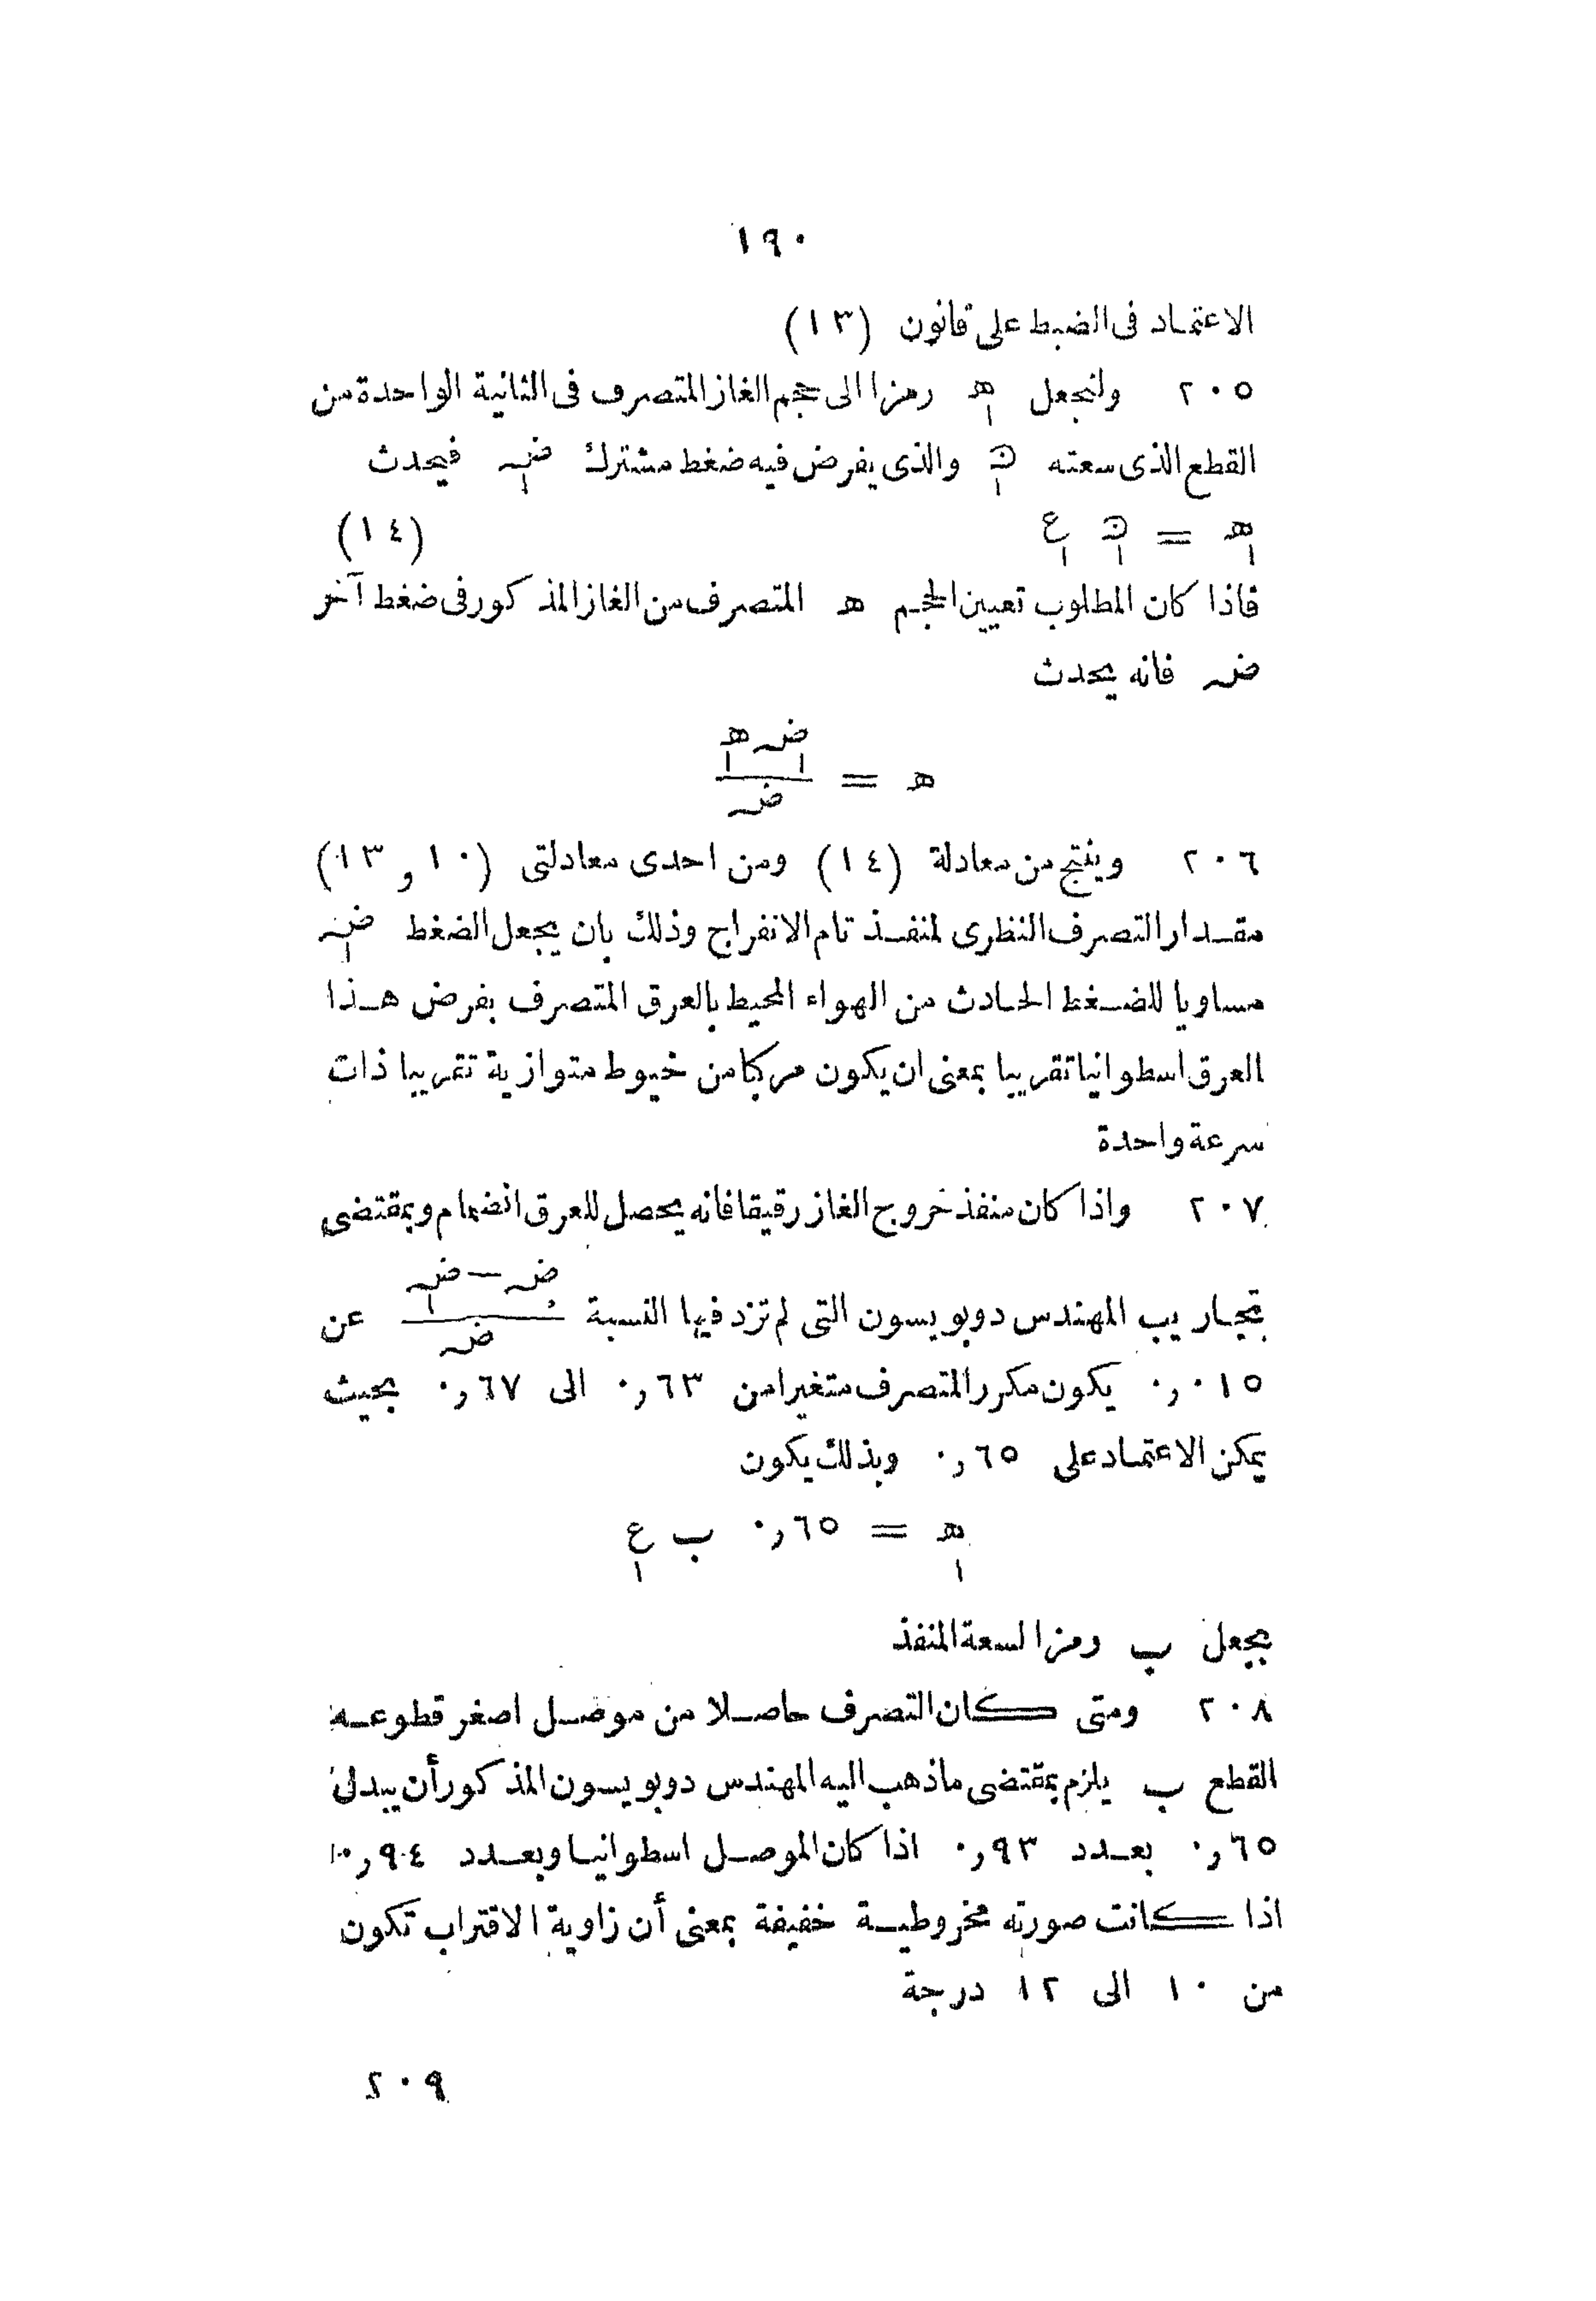 ١٩٠
الاعتماد فى الضبط على قانون (١٣)
٢٠٥ ولنجعل ھ١ رمزا الى حجم الغاز المتصرف فى الثانية الواحدة من
القطع الذى سعته والذى يفرض فيه ضغط مشترك ضہ١ فيحدث
ھ١ = ع١ (١٤)
فاذا كان المطلوب تعيين الحجم ھ المتصرف من الغاز المذكور فى ضغط آخر
ضہ فانه يحدث
ھ = ضہ١ ھ١ / ضہ
٢٠٦ وينتج من معادلة (١٤) ومن احدى معادلتى (١٠ و ١٣)
مقدار التصرف النظرى لمنفذ تام الانفراج وذلك بان يجعل الضغط ضہ١
مساويا للضغط الحادث من الهواء المحيط بالعرق المتصرف بفرض هذا
العرق اسطوانيا تقريبا بمعنى ان يكون مركبا من خيوط متوازية تقريبا ذات
سرعة واحدة
٢٠٧ واذا كان منفذ خروج الغاز رقيقا فانه يحصل للعرق انضمام وبمقتضى
تجاريب المهندس دوبويسون التى لم تزد فيها النسبة ضہ — ضہ١ / ضہ عن
٠,٠١٥ يكون مكرر المتصرف متغيرا من ٠,٦٣ الى ٠,٦٧ بحيث
يمكن الاعتماد على ٠,٦٥ وبذلك يكون
ھ١ = ٠,٦٥ ب ع١
بجعل ب رمزا لسعة المنفذ
٢٠٨ ومتى كان التصرف حاصلا من موصل اصغر قطوعه
القطع ب يلزم بمقتضى ماذهب اليه المهندس دوبويسون المذكور أن يبدل
٠,٦٥ بعدد ٠,٩٣ اذا كان الموصل اسطوانيا وبعدد ٠,٩٤
اذا كانت صورته مخروطية خفيفة بمعنى أن زاوية الاقتراب تكون
من ١٠ الى ١٢ درجة
٢٠٩